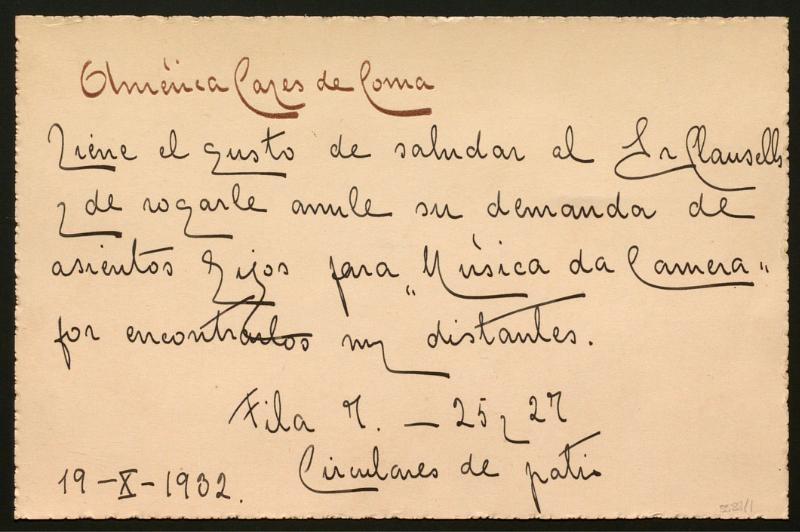 América Cazes de Coma
Tiene el gusto de saludar al Sr Clausells
y de rogarle anule su demanda de
asientos fijos para "Música da Camera"
por encontrarlos muy distantes.
Fila 7. — 25 y 27
Circulares de patio
19-X-1932.